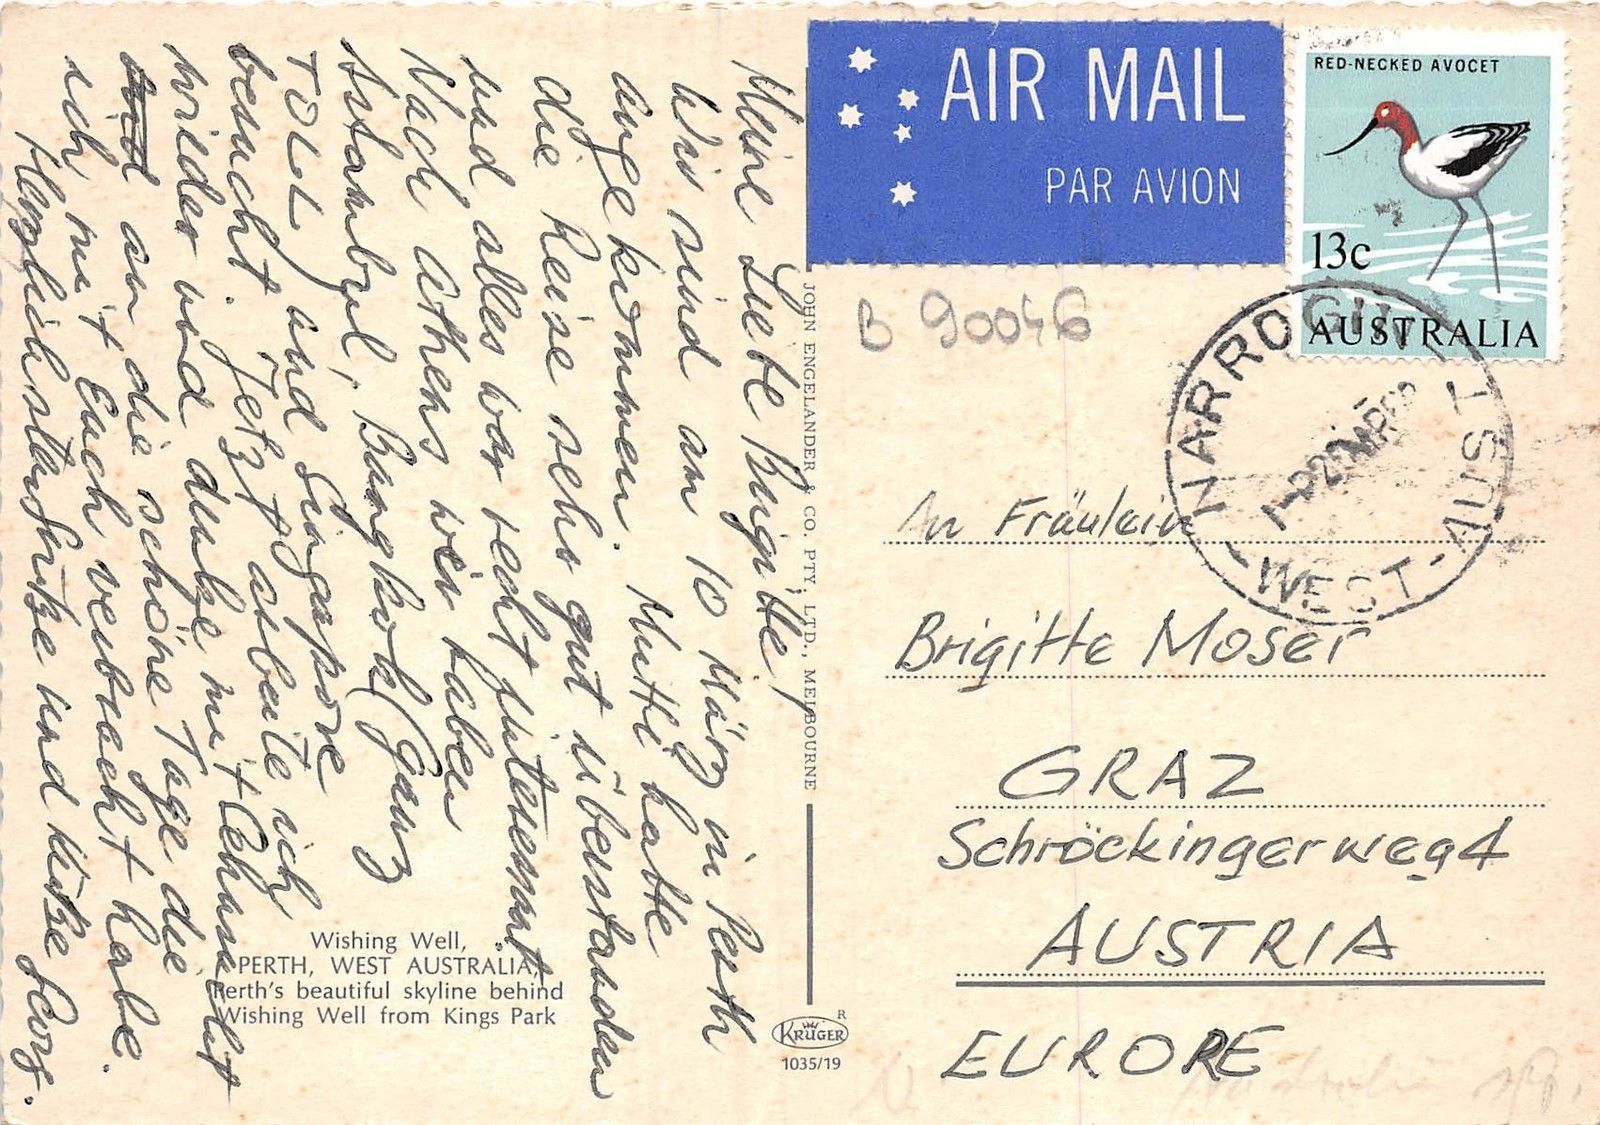 Meine Liebe Brigitte!
Wir sind am 10 März in Perth
angekommen. Mutti hatte
die Reise sehr gut überstanden
und alles war recht interessant
Nach Athens wir haben
Istambul, Bangkok (Ganz
TOLL) und Singapore
besucht. Jetzt arbeite ich
wieder und denke mit
an die schöne Tage die
ich mit Euch verbracht habe.
Herzlichst Grüße und Küße
Wishing Well,
PERTH, WEST AUSTRALIA,
Perth's beautiful skyline behind
Wishing Well from Kings Park
JOHN ENGELANDER & CO. PTY. LTD., MELBOURNE
KRÜGER
R
1035/19
AIR MAIL
PAR AVION
RED-NECKED AVOCET
13c
AUSTRALIA
B 90046
NARROGIN
WEST-AUST
An Fräulein
Brigitte Moser
GRAZ
Schröckingerweg 4
AUSTRIA
EUROPE